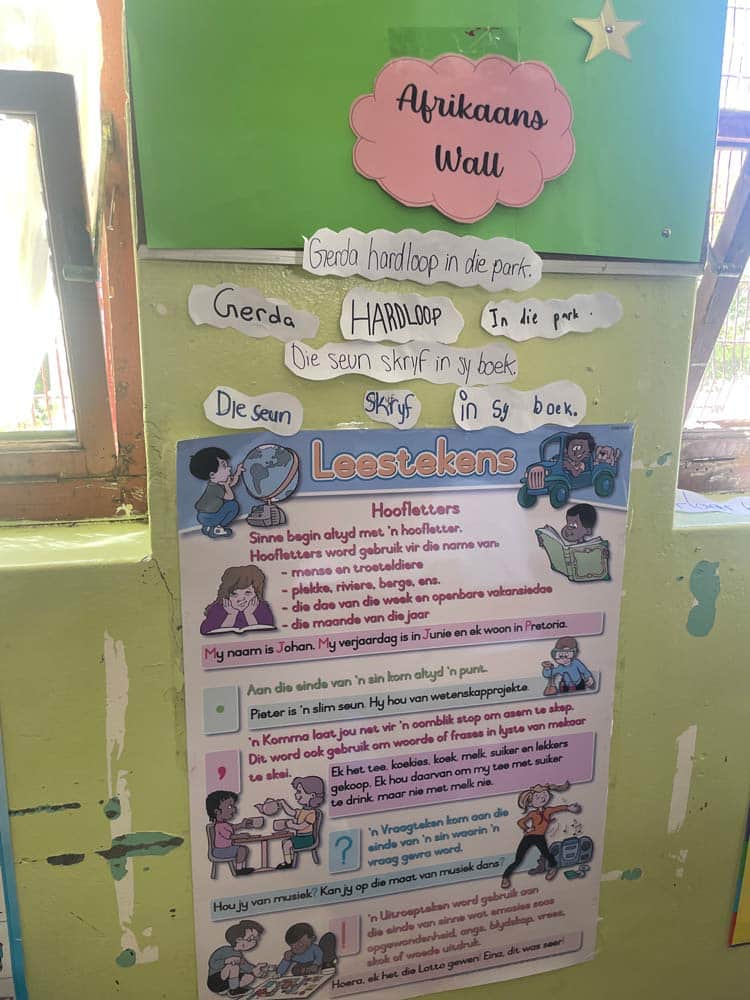 Afrikaans
Wall
Gerda hardloop in die park.
Gerda HARDLOOP In die park.
Die seun skryf in sy boek.
Die seun skryf in sy boek.
Leestekens
Hoofletters
Sinne begin altyd met 'n hoofletter.
Hoofletters word gebruik vir die name van:
- mense en troeteldiere
- plekke, riviere, berge, ens.
- die dae van die week en openbare vakansiedae
- die maande van die jaar
My naam is Johan. My verjaardag is in Junie en ek woon in Pretoria.
.
Aan die einde van 'n sin kom altyd 'n punt.
Pieter is 'n slim seun. Hy hou van wetenskapprojekte.
,
'n Komma laat jou net vir 'n oomblik stop om asem te skep.
Dit word ook gebruik om woorde of frases in lyste van mekaar
te skei.
Ek het tee, koekies, koek, melk, suiker en lekkers
gekoop. Ek hou daarvan om my tee met suiker
te drink, maar nie met melk nie.
?
'n Vraagteken kom aan die
einde van 'n sin waarin 'n
vraag gevra word.
Hou jy van musiek? Kan jy op die maat van musiek dans?
!
'n Uitroepteken word gebruik aan
die einde van sinne wat emosies soos
opgewondenheid, angs, blydskap, vrees,
skok of woede uitdruk.
Hoera, ek het die Lotto gewen! Eina, dit was seer!